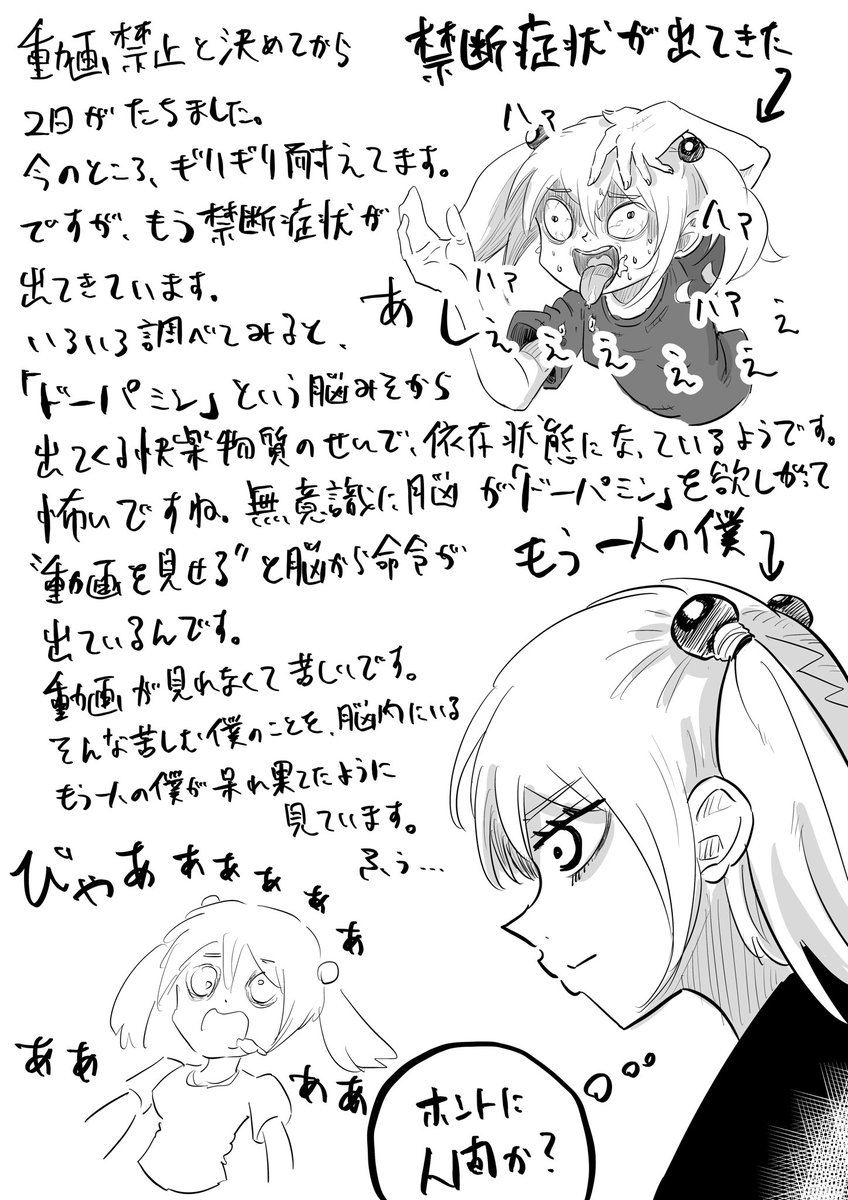 動画禁止と決めてから
2日がたちました。
今のところ、ギリギリ耐えてます。
ですが、もう禁断症状が
出てきています。
いろいろ調べてみると、
「ドーパミン」という脳みそから
出てくる快楽物質のせいで、依存状態になっているようです。
怖いですね。無意識に脳が「ドーパミン」を欲しがって
"動画を見せろ"と脳から命令が
出ているんです。
動画が見れなくて苦しいです。
そんな苦しむ僕のことを、脳内にいる
もう一人の僕が呆れ果てたように
見ています。
禁断症状が出てきた
ハァ
ハァ
ハァ
ハァ
あしぇぇぇぇぇぇ
もう一人の僕
ふぅ…
びゃあぁぁぁぁぁ
ああ
ああ
ホントに
人間か?